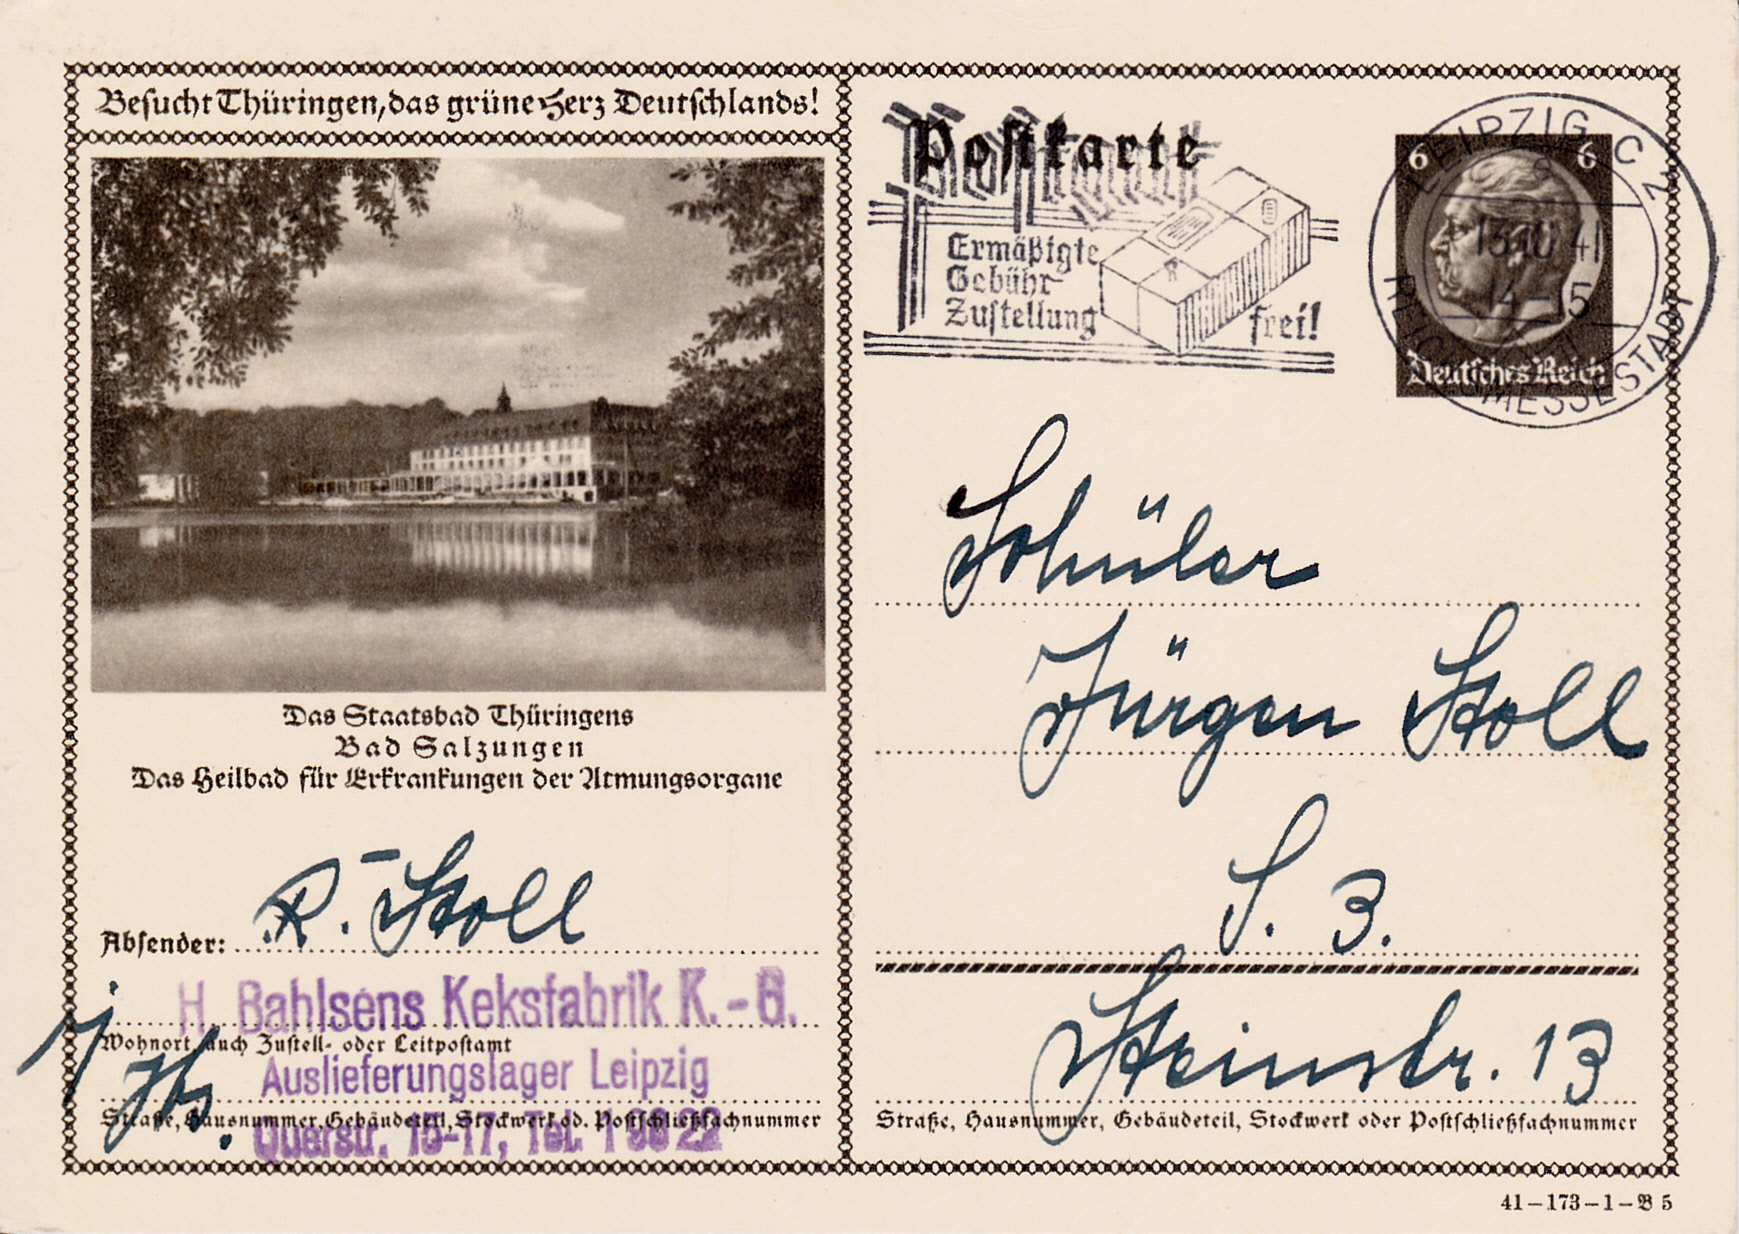 Besucht Thüringen, das grüne Herz Deutschlands!
Das Staatsbad Thüringens
Bad Salzungen
Das Heilbad für Erkrankungen der Atmungsorgane
Absender: R. Stoll
H. Bahlsens Keksfabrik K.-G.
Wohnort, auch Zustell- oder Leitpostamt
Auslieferungslager Leipzig
Straße, Hausnummer, Gebäudeteil, Stockwerk od. Postschließfachnummer
Querstr. 15-17, Tel.
Postkarte
Ermäßigte
Gebühr
Zustellung frei!
LEIPZIG C 2
13.10.41
14-15
REICHSMESSESTADT
6 6
Deutsches Reich
Schüler
Jürgen Stoll
S. 3.
Steinstr. 13
Straße, Hausnummer, Gebäudeteil, Stockwerk oder Postschließfachnummer
41-173-1-B 5